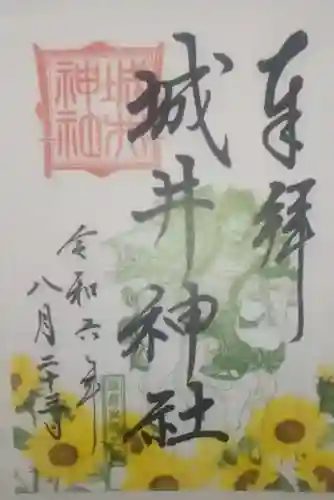 奉拝
城井神社
令和六年
八月二十三日
城井
神社